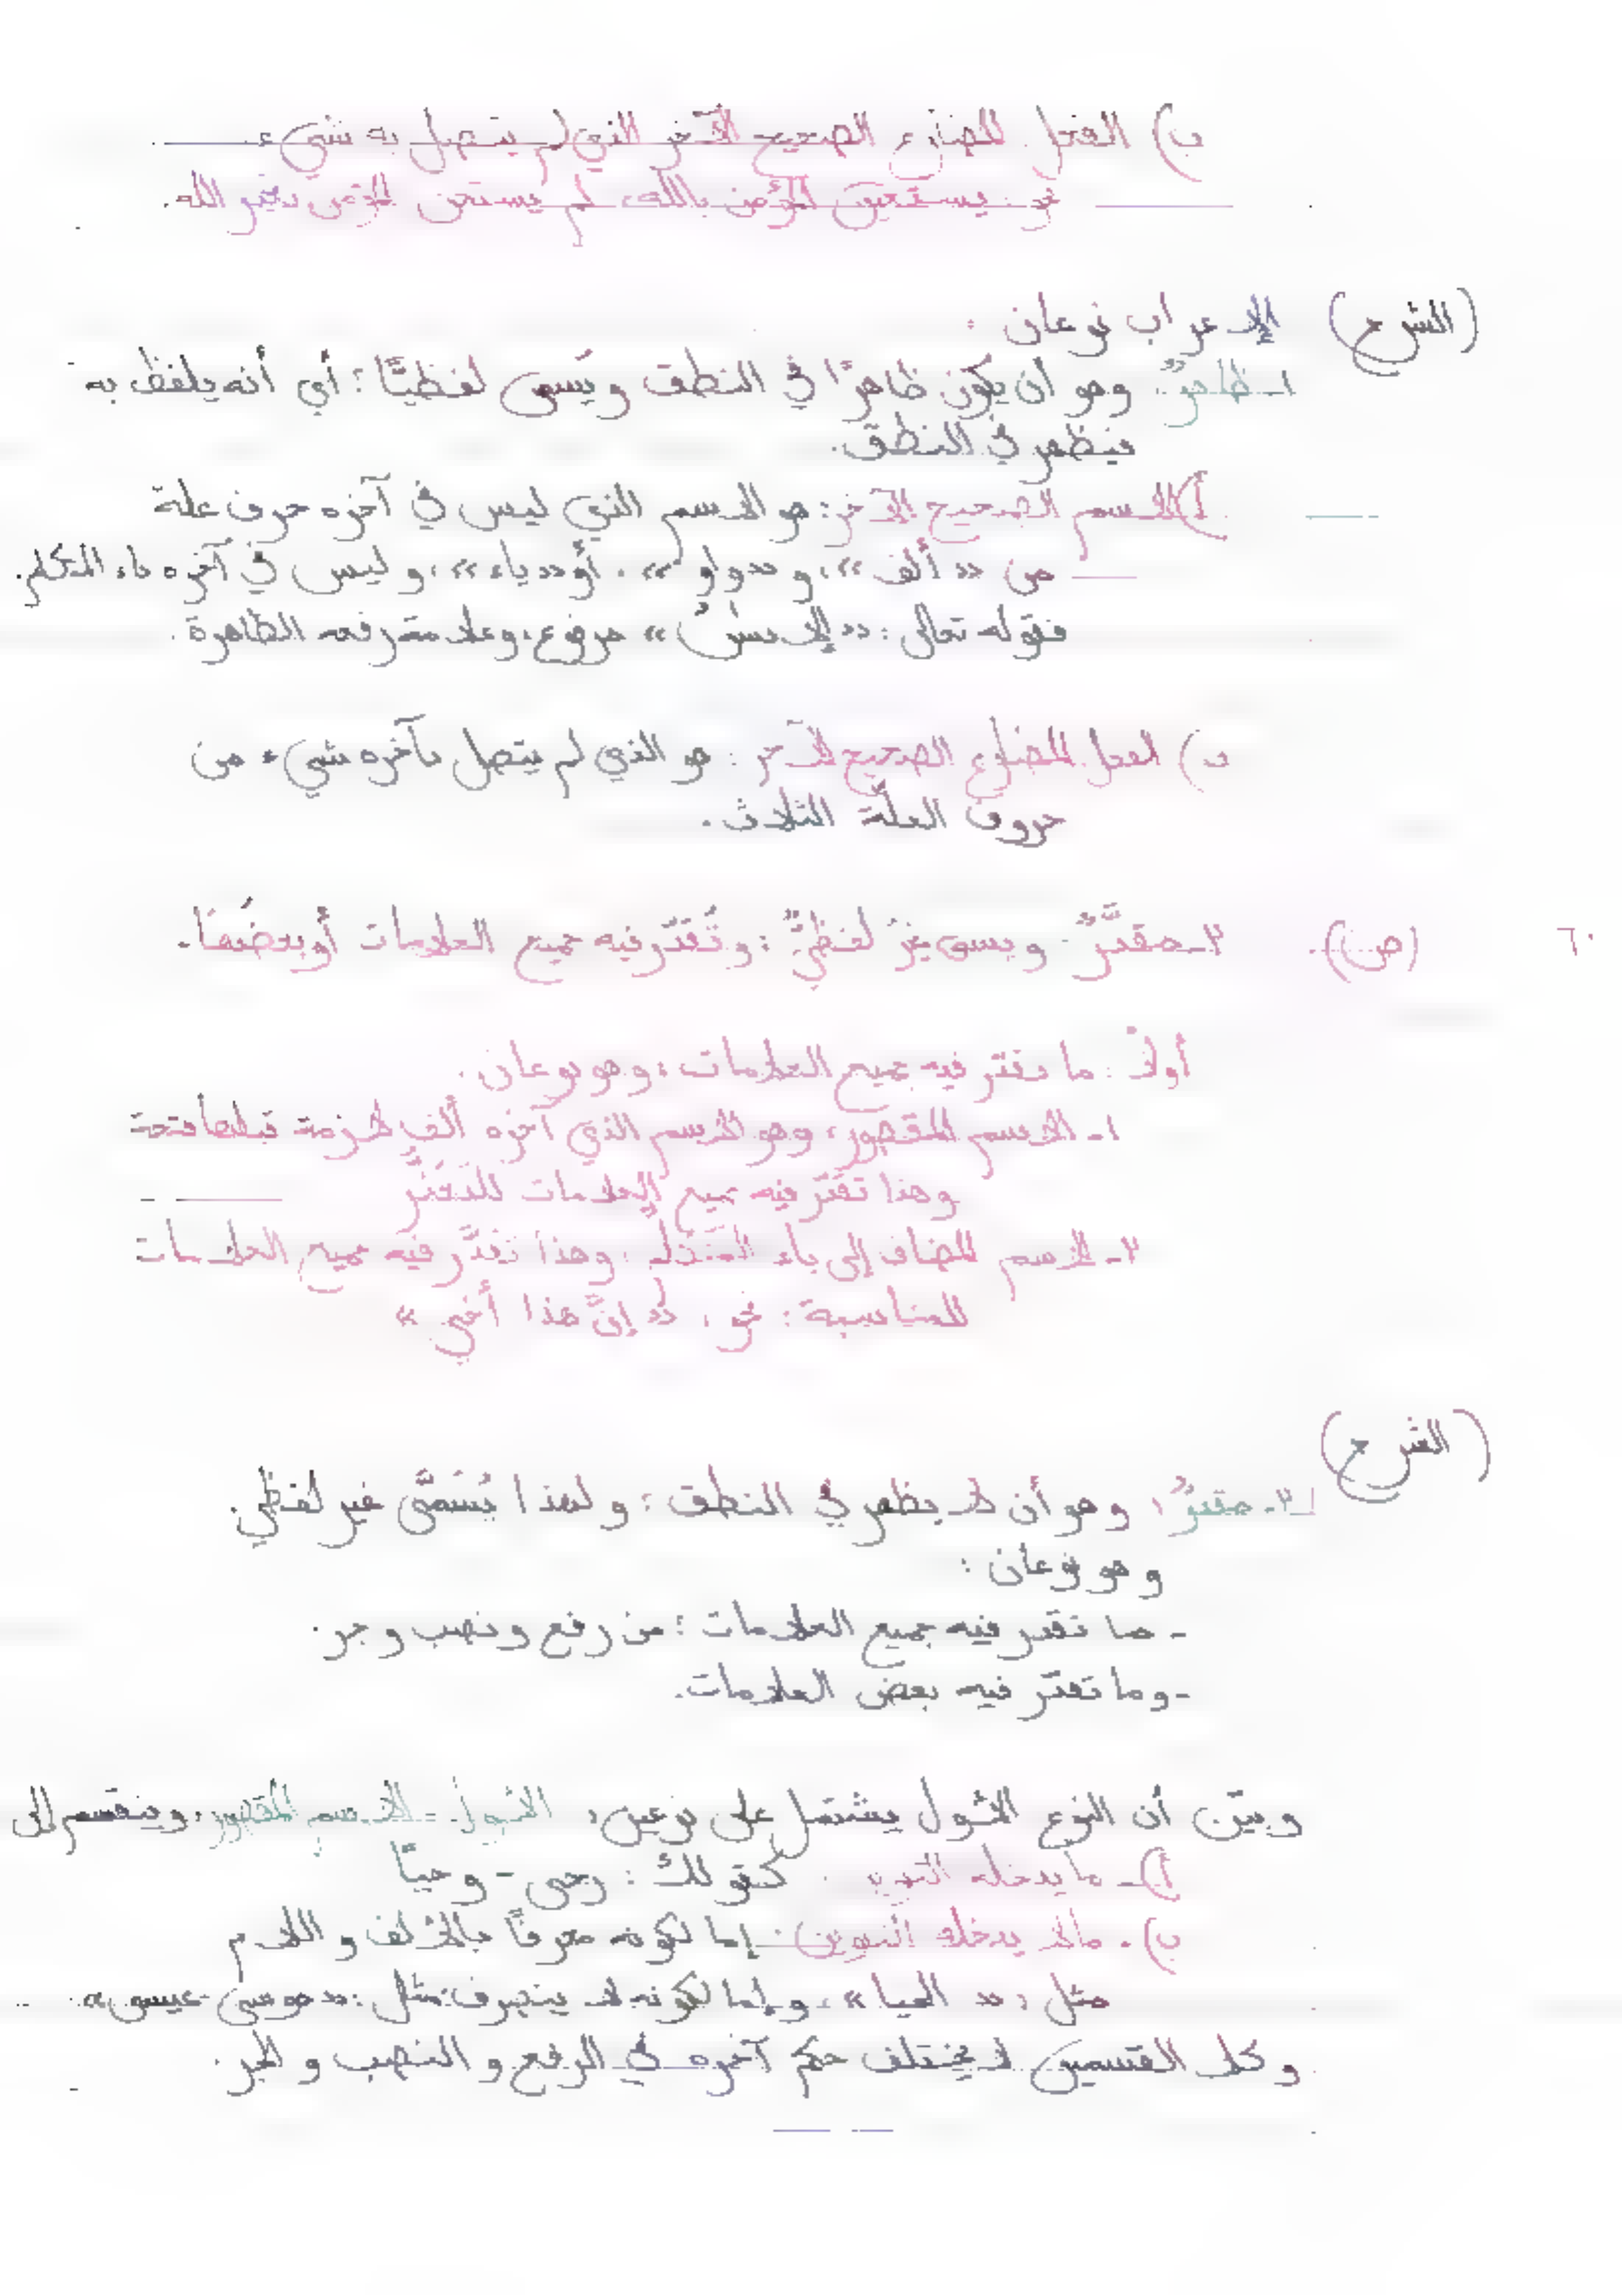 ب) الفعل المضارع الصحيح الآخر الذي لم يتصل به شيء
نحو: يستعين المؤمن بالله، لم يستعن المؤمن بغير الله.
(الشرح) الإعراب نوعان:
١- ظاهرٌ: وهو أن يكون ظاهرًا في النطق ويسمى لفظيًّا؛ أي أنه يلفظ به
فيظهر في النطق.
أ) الاسم الصحيح الآخر: هو الاسم الذي ليس في آخره حرف علة
من «ألف»، و«واو»، أو «ياء»، وليس في آخره ياء المتكلم.
فقوله تعالى: «» مرفوع، وعلامة رفعه الظاهرة.
ب) الفعل المضارع الصحيح الآخر: هو الذي لم يتصل بآخره شيء من
حروف العلّة الثلاث.
٦٠ (ص) ٢- مقدَّرٌ: ويسمى غيرَ لفظيٍّ: وتُقدّر فيه جميع العلامات أو بعضُها.
أولاً: ما تقدّر فيه جميع العلامات، وهو نوعان.
١- الاسم المقصور، وهو الاسم الذي آخره ألف لازمة قبلها فتحة
وهذا تقدّر فيه جميع العلامات للتعذّر
٢- الاسم المضاف إلى ياء المتكلم، وهذا تقدّر فيه جميع العلامات
للمناسبة: نحو: «إنّ هذا أخي»
(الشرح)
٢- مقدرٌ: وهو أن لا يظهر في النطق؛ ولهذا يُسَمَّى غير لفظي.
وهو نوعان:
- ما تقدر فيه جميع العلامات؛ من رفع ونصب وجر.
- وما تقدّر فيه بعض العلامات.
وبيّن أن النوع الأول يشتمل على نوعين: الأول - الاسم المقصور، وينقسم إلى
أ)- ما يدخله التنوين: كقولك: رحى - وحيًا
ب)- ما لا يدخله التنوين: إما لكونه معرفاً بالألف واللام
مثل: «الحيا»، وإما لكونه لا ينصرف: مثل: «موسى - عيسى»
وكلا القسمين لا يختلف حكم آخره في الرفع والنصب والجر.